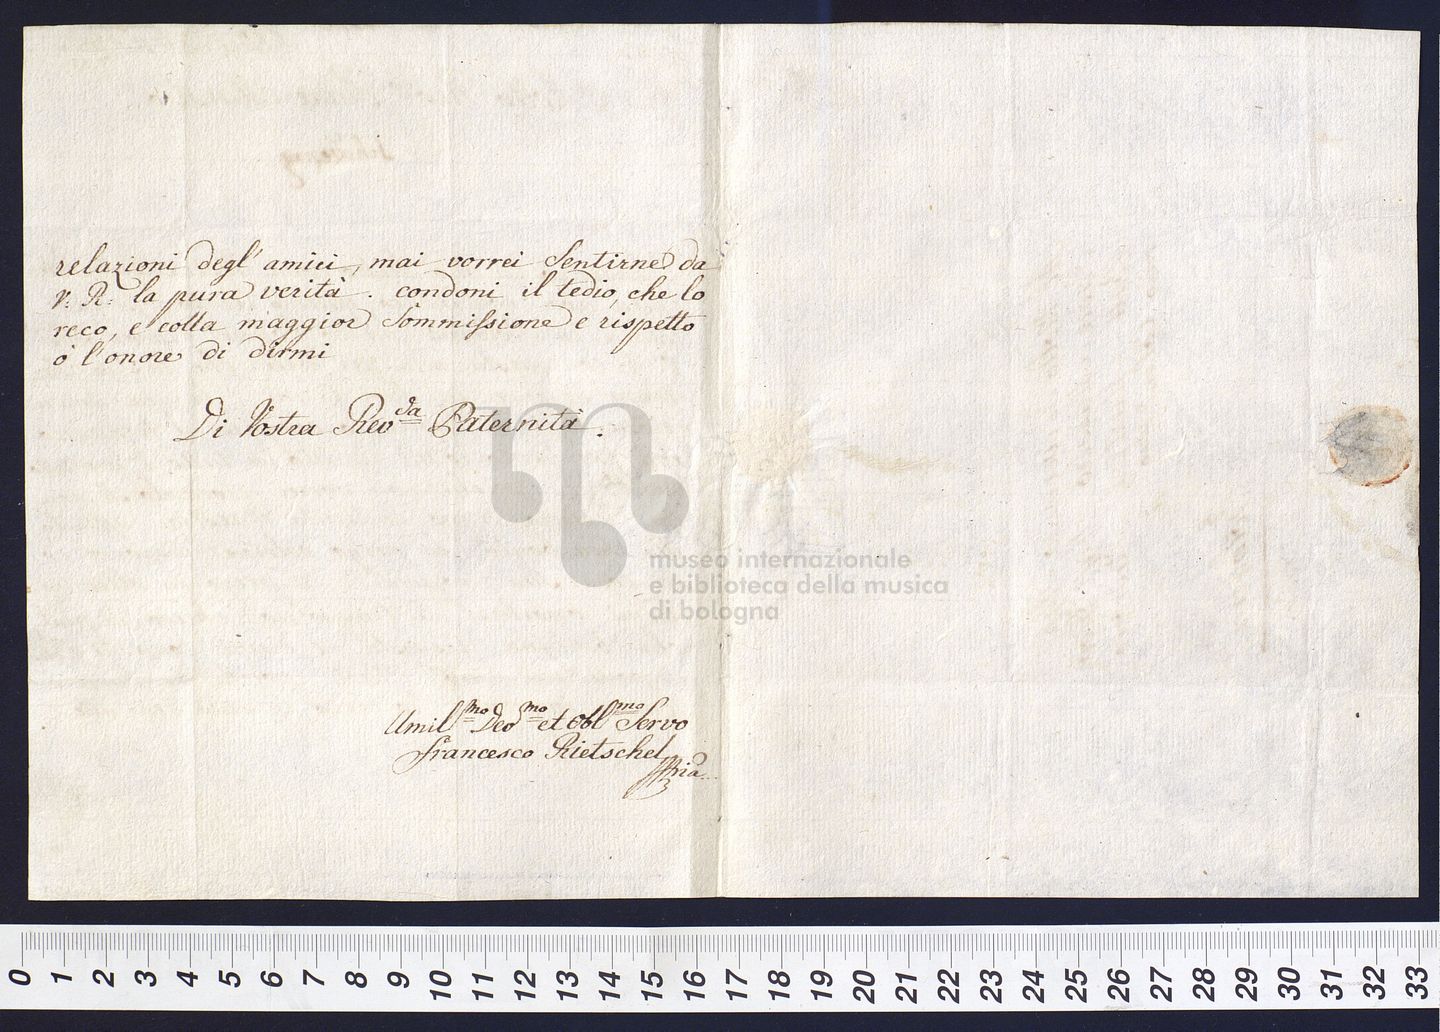 relazioni degl' amici, mai vorrei Sentirne da
V: R: la pura verità. condoni il tedio, che lo
reco, e colla maggior Sommissione e rispetto
ò l'onore di dirmi
Di Vostra Rev.da Paternità.
Umil.mo Deo.mo et Obl.mo Servo
Francesco Rietschel
museo internazionale
e biblioteca della musica
di bologna
0 1 2 3 4 5 6 7 8 9 10 11 12 13 14 15 16 17 18 19 20 21 22 23 24 25 26 27 28 29 30 31 32 33